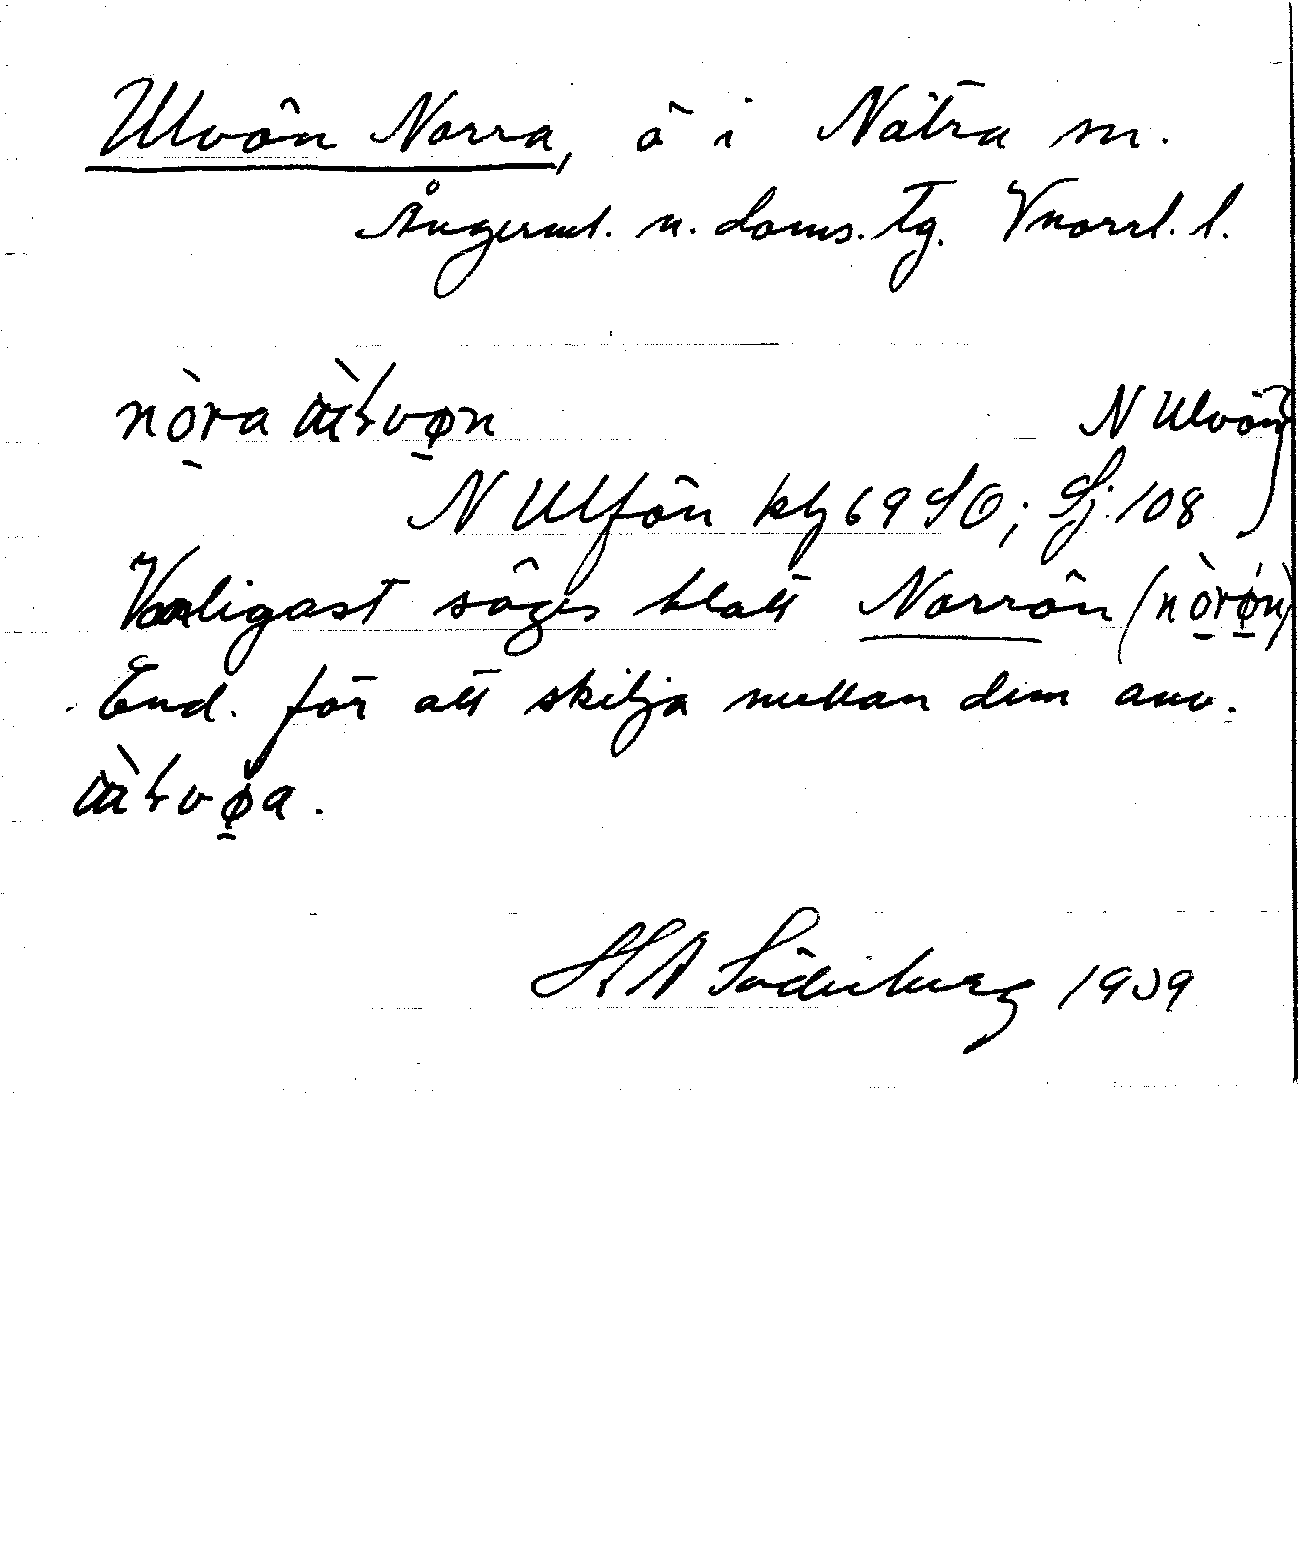 Ulvön Norra, ö i Nätra sn.
Ångerml. n. doms. tg. Vnorrl. l.
N Ulvön
N Ulfön kbl 69 SO; Sj. 108
Vanligast säges blott Norrön (nò̱rø̱n)
End. för att skilja mellan dem anv.
HA Söderberg 1939